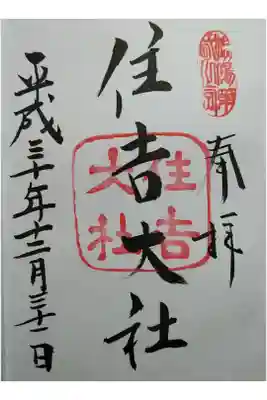 奉拝
住吉大社
住吉
大社
平成三十年十二月三十一日